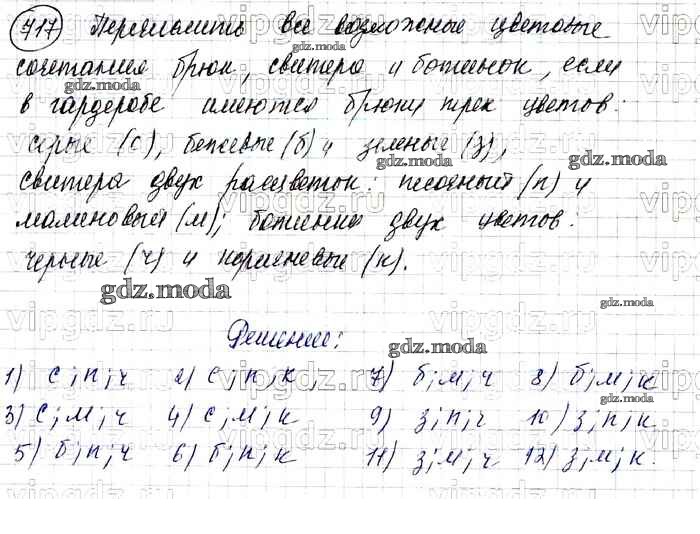 717 Перечислить все возможные цветовые
сочетания брюк, свитера и ботинок, если
в гардеробе имеются брюки трех цветов:
серые (с), бежевые (б) и зеленые (з),
свитера двух расцветок: песочный (п) и
малиновый (м); ботинки двух цветов:
черные (ч) и коричневые (к).
Решение:
1) с; п; ч 2) с; п; к, 7) б; м; ч 8) б; м; к
3) с; м; ч 4) с; м; к 9) з; п; ч 10) з; п; к
5) б; п; ч 6) б; п; к 11) з; м; ч 12) з; м; к.
gdz.moda
vipgdz.ru